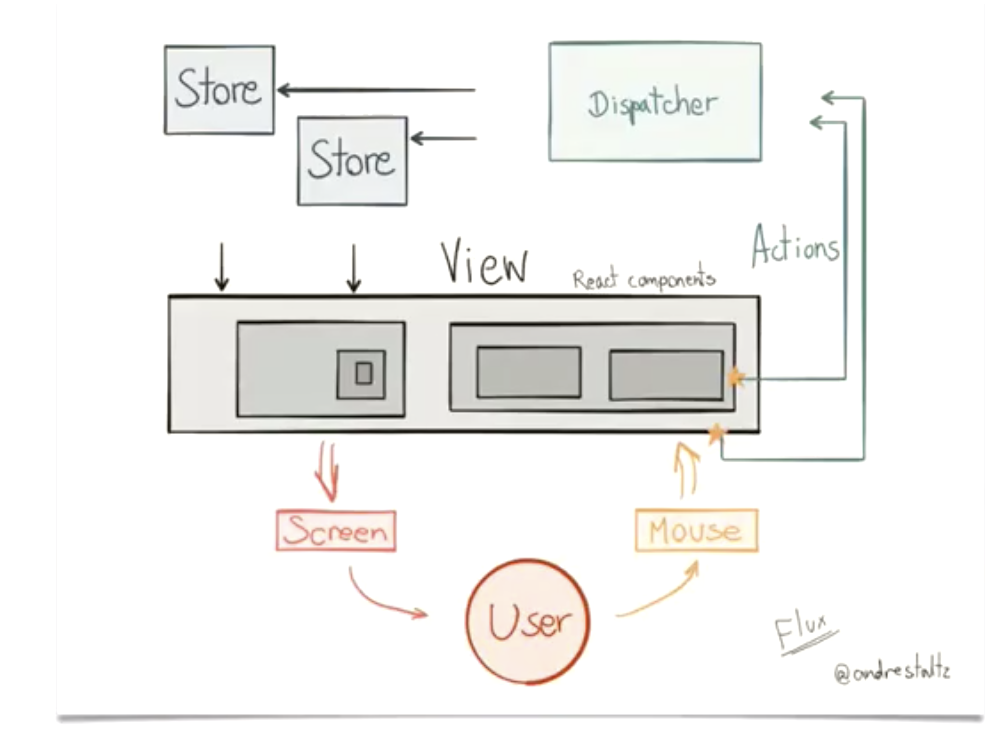 Store
Dispatcher
Store
Actions
View
React components
Screen
Mouse
User
Flux
@andrestaltz